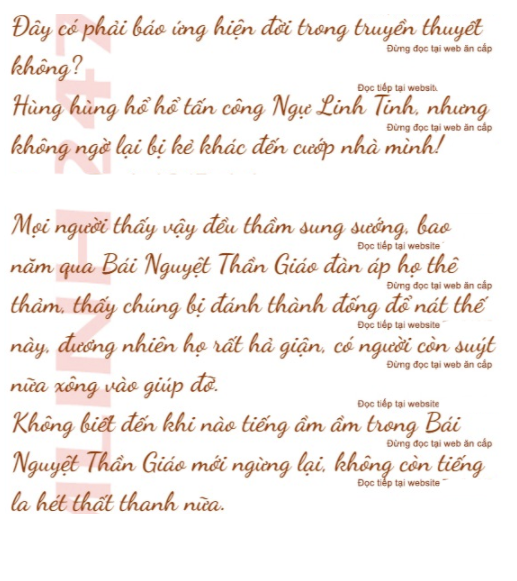 Đây có phải báo ứng hiện đời trong truyền thuyết
Đừng đọc tại web ăn cắp
không?
Đọc tiếp tại website
Hùng hùng hổ hổ tấn công Ngự Linh Tinh, nhưng
Đừng đọc tại web ăn cắp
không ngờ lại bị kẻ khác đến cướp nhà mình!
Mọi người thấy vậy đều thầm sung sướng, bao
Đọc tiếp tại website
năm qua Bái Nguyệt Thần Giáo đàn áp họ thê
Đừng đọc tại web ăn cắp
thảm, thấy chúng bị đánh thành đống đổ nát thế
Đọc tiếp tại website
này, đương nhiên họ rất hả giận, có người còn suýt
Đừng đọc tại web ăn cắp
nữa xông vào giúp đỡ.
Đọc tiếp tại website
Không biết đến khi nào tiếng ầm ầm trong Bái
Đừng đọc tại web ăn cắp
Nguyệt Thần Giáo mới ngừng lại, không còn tiếng
Đọc tiếp tại website
la hét thất thanh nữa.